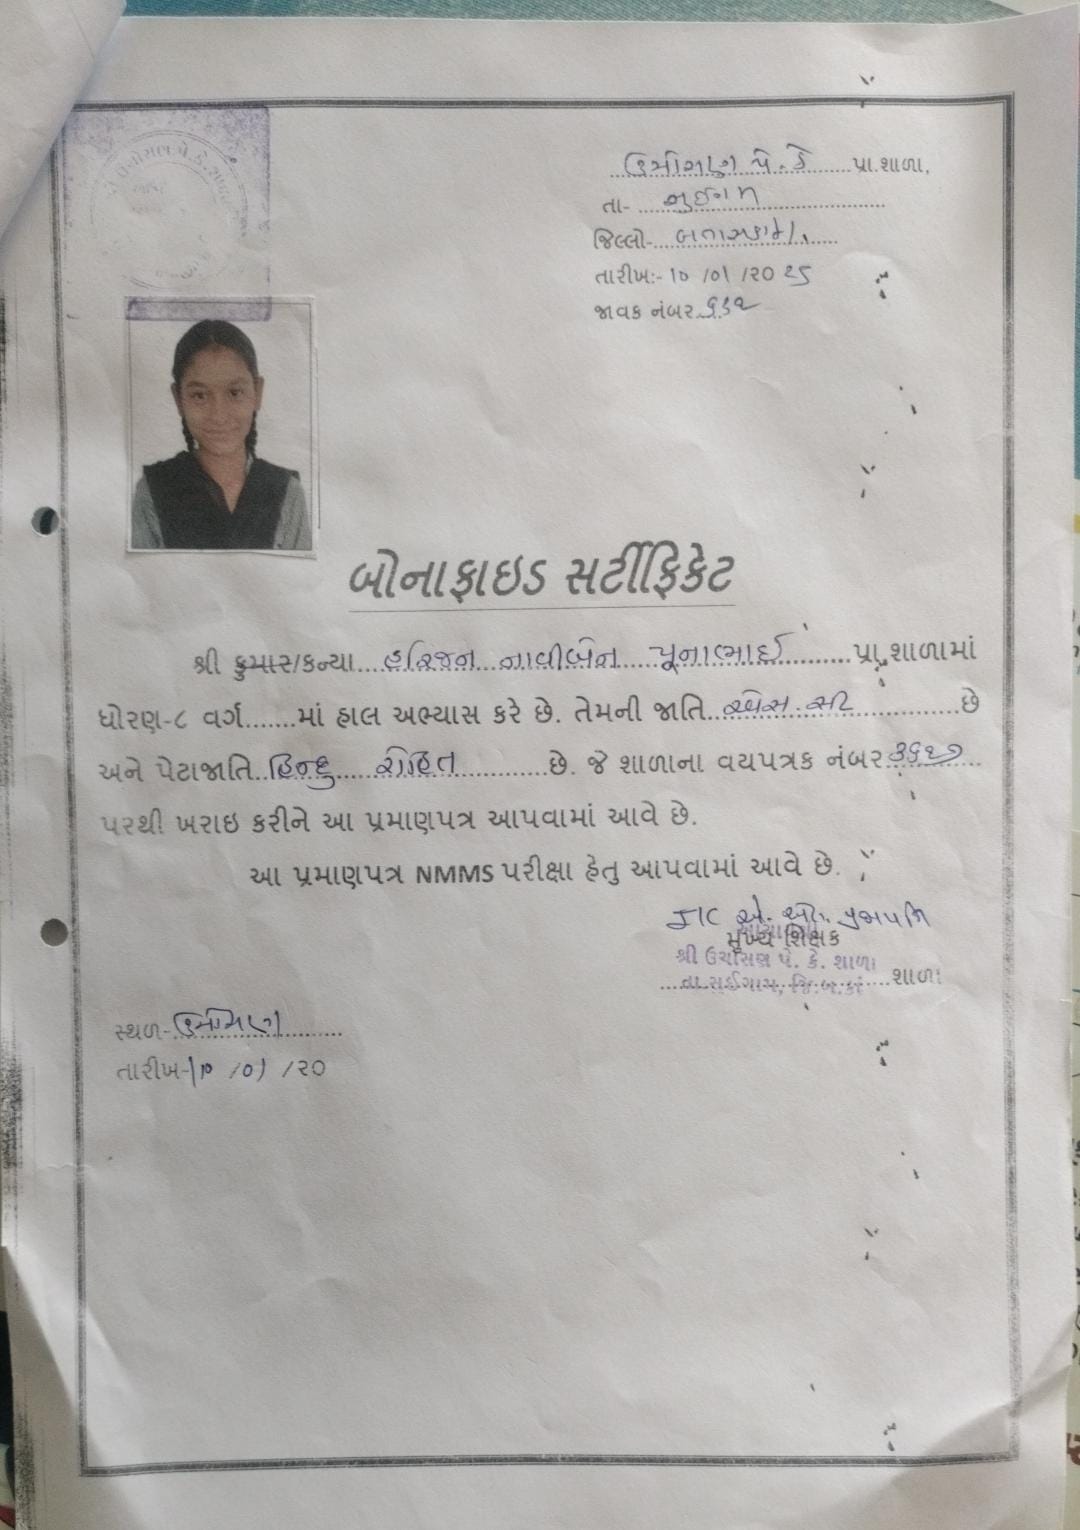 ઉચોસણ પે. કે પ્રા.શાળા,
તા- સુઈગામ
જિલ્લો- બનાસકાંઠા.
તારીખ:- ૧૦ /૦૧ /૨૦ ૨૫
જાવક નંબર
બોનાફાઇડ સર્ટીફિકેટ
શ્રી કુમાર/કન્યા હરિજન નાવીબેન પૂનાભાઈ પ્રા. શાળામાં
ધોરણ-૮ વર્ગ.......માં હાલ અભ્યાસ કરે છે. તેમની જાતિ એસ. સી છે
અને પેટાજાતિ હિન્દુ રોહિત છે. જે શાળાના વયપત્રક નંબર
પરથી ખરાઇ કરીને આ પ્રમાણપત્ર આપવામાં આવે છે.
આ પ્રમાણપત્ર NMMS પરીક્ષા હેતુ આપવામાં આવે છે.
I/C પ્રજાપતિ
મુખ્ય શિક્ષક
શ્રી ઉચોસણ પે. કે. શાળા
તા.સુઈગામ, જિ.બ.કાં શાળા
સ્થળ- ઉચોસણ
તારીખ- ૧૦ /૦૧ /૨૦